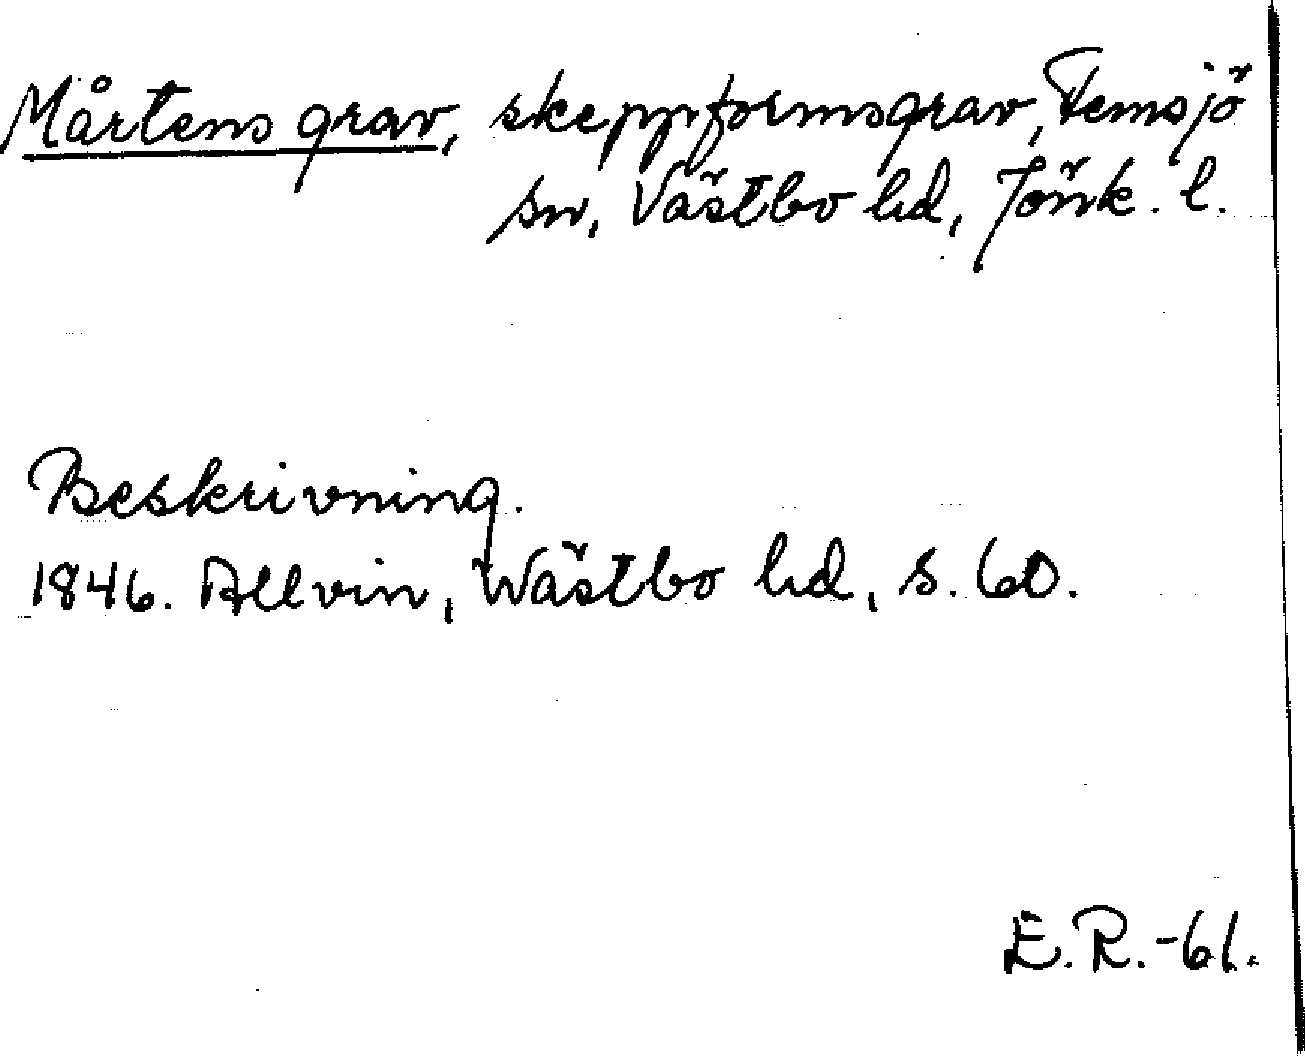 Mårtens grav, skeppformsgrav, Femsjö
sn, Västbo hd, Jönk. l.
Beskrivning.
1846. Allvin, Wästbo hd, s. 60.
E.R.-61.